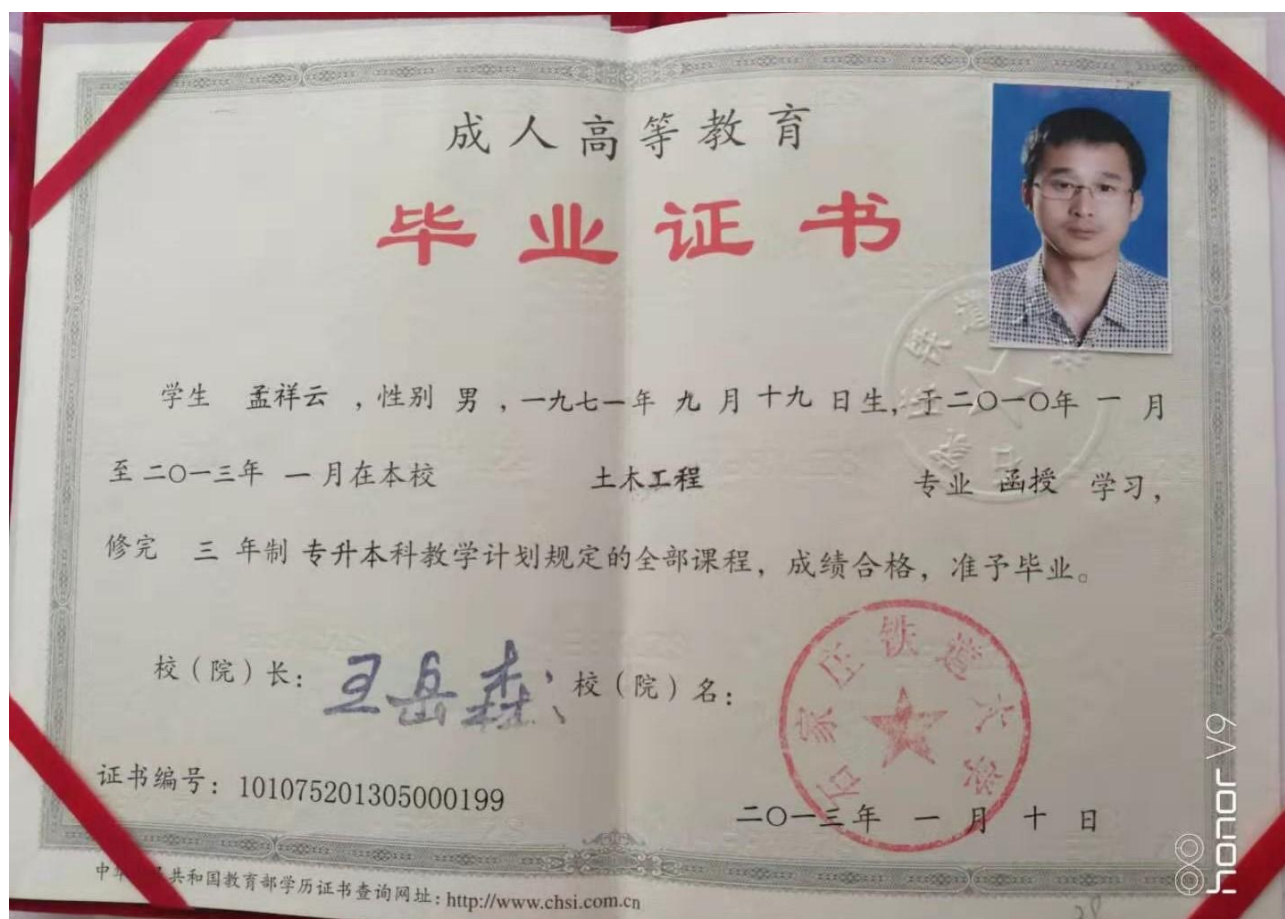 成人高等教育
毕业证书
学生 孟祥云 ，性别 男 ，一九七一年 九 月 十九 日生，于二〇一〇年 一 月
至 二〇一三年 一 月在本校 土木工程 专业 函授 学习，
修完 三 年制 专升本科教学计划规定的全部课程，成绩合格，准予毕业。
校（院）长： 王岳森 校（院）名：
石家庄铁道大学
证书编号：101075201305000199
二〇一三年 一 月 十 日
中华 共和国教育部学历证书查询网址：http://www.chsi.com.cn
honor V9